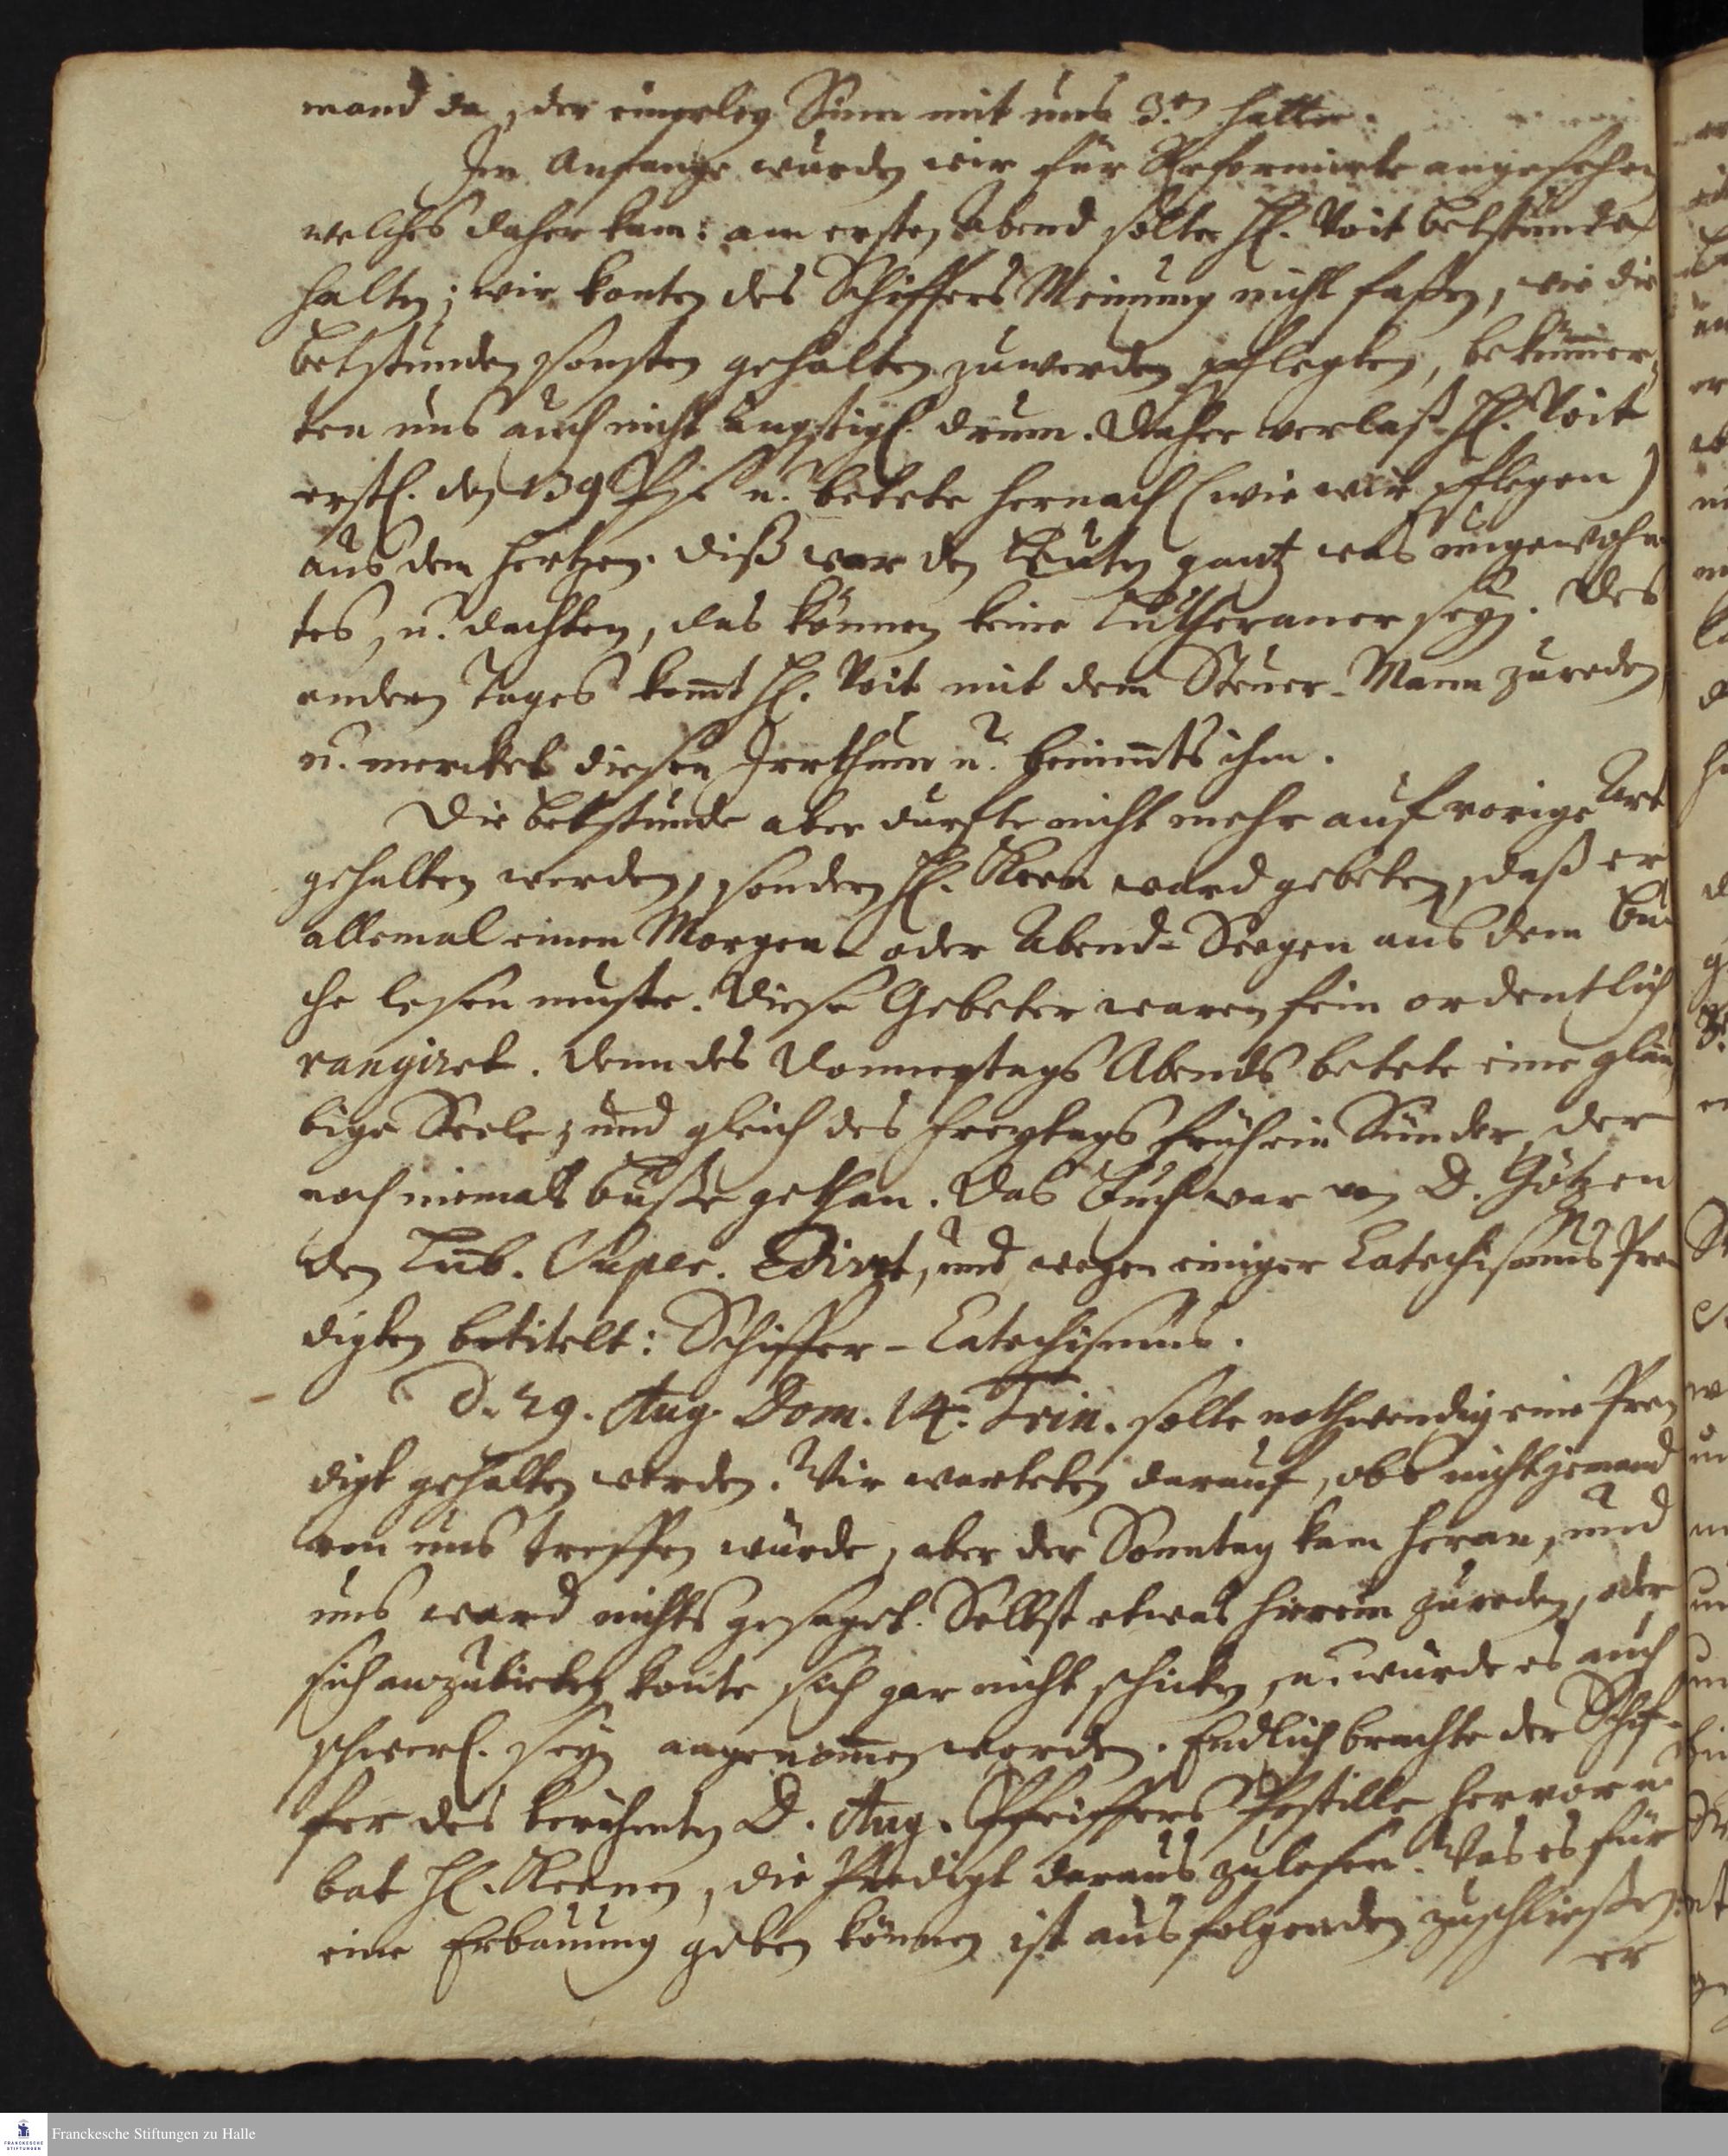 mand da, der einerley Sinn mit uns 3.en hatte.
Im Anfange wurden wir für Reformirte angesehen,
welches daher kam: am ersten Abend solte H. Voit betstunde
halten; wir konten des Schiffers Meinung nicht faßen, wie die
betstunden sonsten gehalten zuwerden pflegten, bekümmer,
ten uns auch nicht ängstigl. drum. Daher verlaß H. Voit
erstl. den 139 Ps. u. betete hernach (wie wir pflegen)
aus dem Hertzen. diß war den Leuten gantz was ungewohn
tes, u. dachten, das können keine Lutheraner seyn. Des
andern Tages komt H. Voit mit dem Steuer-Mann zureden
u. mercket diesen Irrthum u. benimmts ihm.
Die betstunde aber durfte nicht mehr auf vorige Art
gehalten werden, sondern H. Kern ward gebeten, daß er
allemal einen Morgen- oder Abend-Seegen aus dem Bu-
che lesen muste. Diese Gebeter waren fein ordentlich
rangiret. Denn des Donnerstags Abends betete eine gläu,
bige Seele; und gleich des Freytags früh ein Sünder, der
noch niemals buße gethan. Das Buch war von D. Götzen
den Lüb. Super. Edirt, und wegen einiger Catechismus Pre-
digten betitelt: Schiffer-Catechismus.
d. 29. Aug. Dom. 14. Trin. solte nothwendig eine Pre,
digt gehalten werden. Wir warteten darauf, obs nicht jemand
von uns treffen würde, aber der Sonntag kam heran, und
uns ward nichts gesaget. Selbst etwas hierein zureden, oder
sich anzubieten konte sich gar nicht schicken, u. würde es auch
schwerl. seyn angenommen worden. Endlich brachte der Schif-
fer des berühmten D. Aug. Pfeiffers Postille hervor u.
bat H. Kernen, die Predigt daraus zulesen. Was es für
eine Erbauung geben können ist aus folgenden zuschließen:
er
Franckesche Stiftungen zu Halle